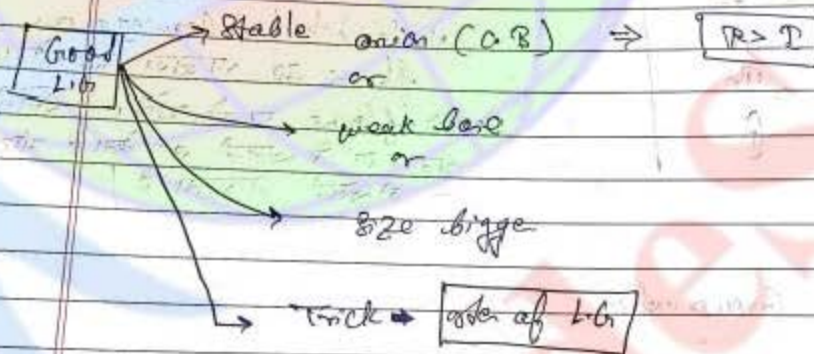 Good L.G
Stable anion (C.B) ⇒ R > I
or
weak base
or
size bigge
Trick → order of L.G